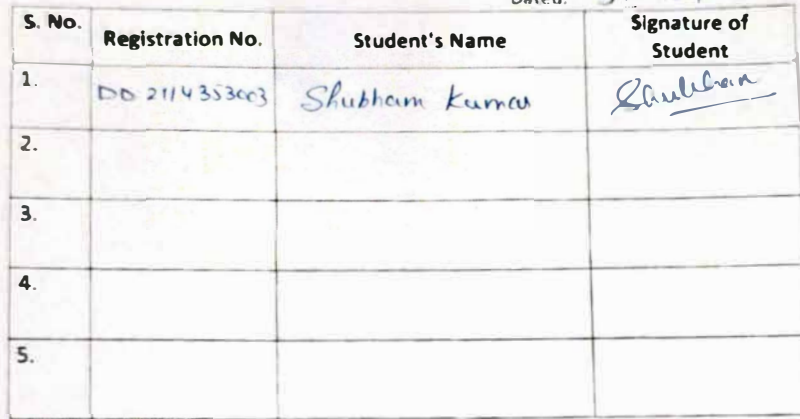 Dated:
S. No. Registration No. Student's Name Signature of Student
1. DD 2114353003 Shubham Kumar Shubham
2.
3.
4.
5.